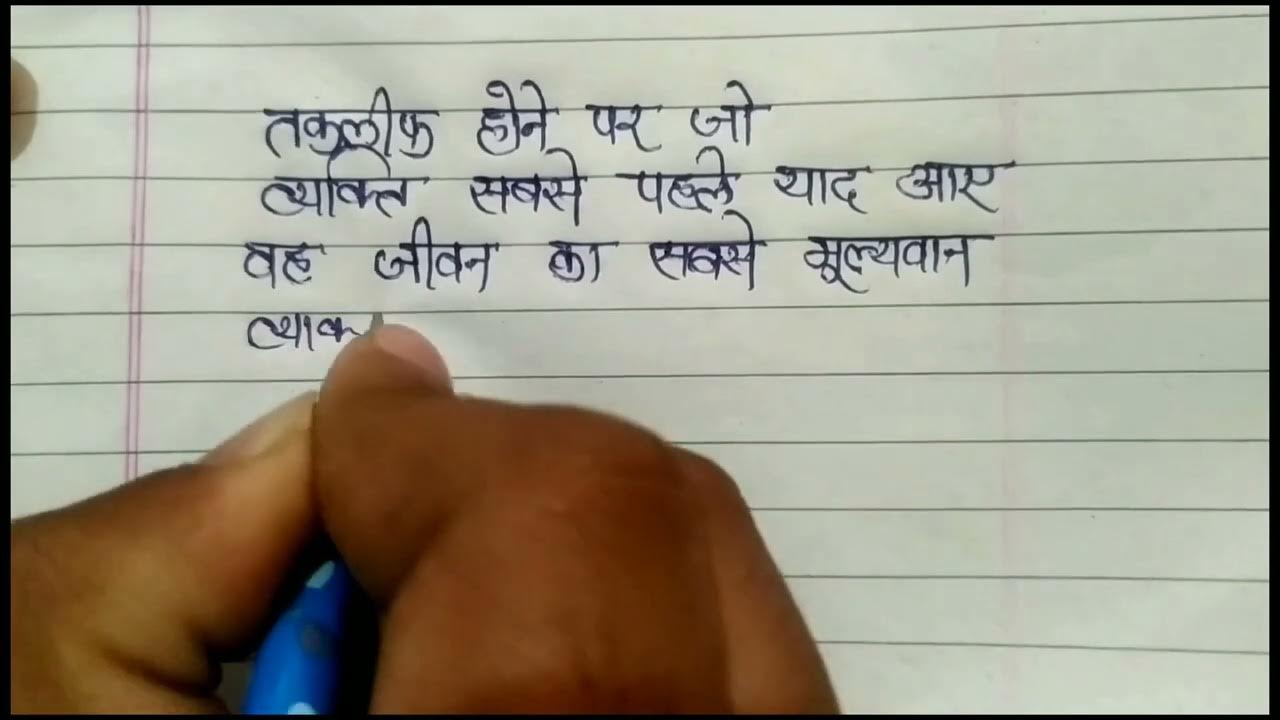 तकलीफ होने पर जो
व्यक्ति सबसे पहले याद आए
वह जीवन का सबसे मूल्यवान